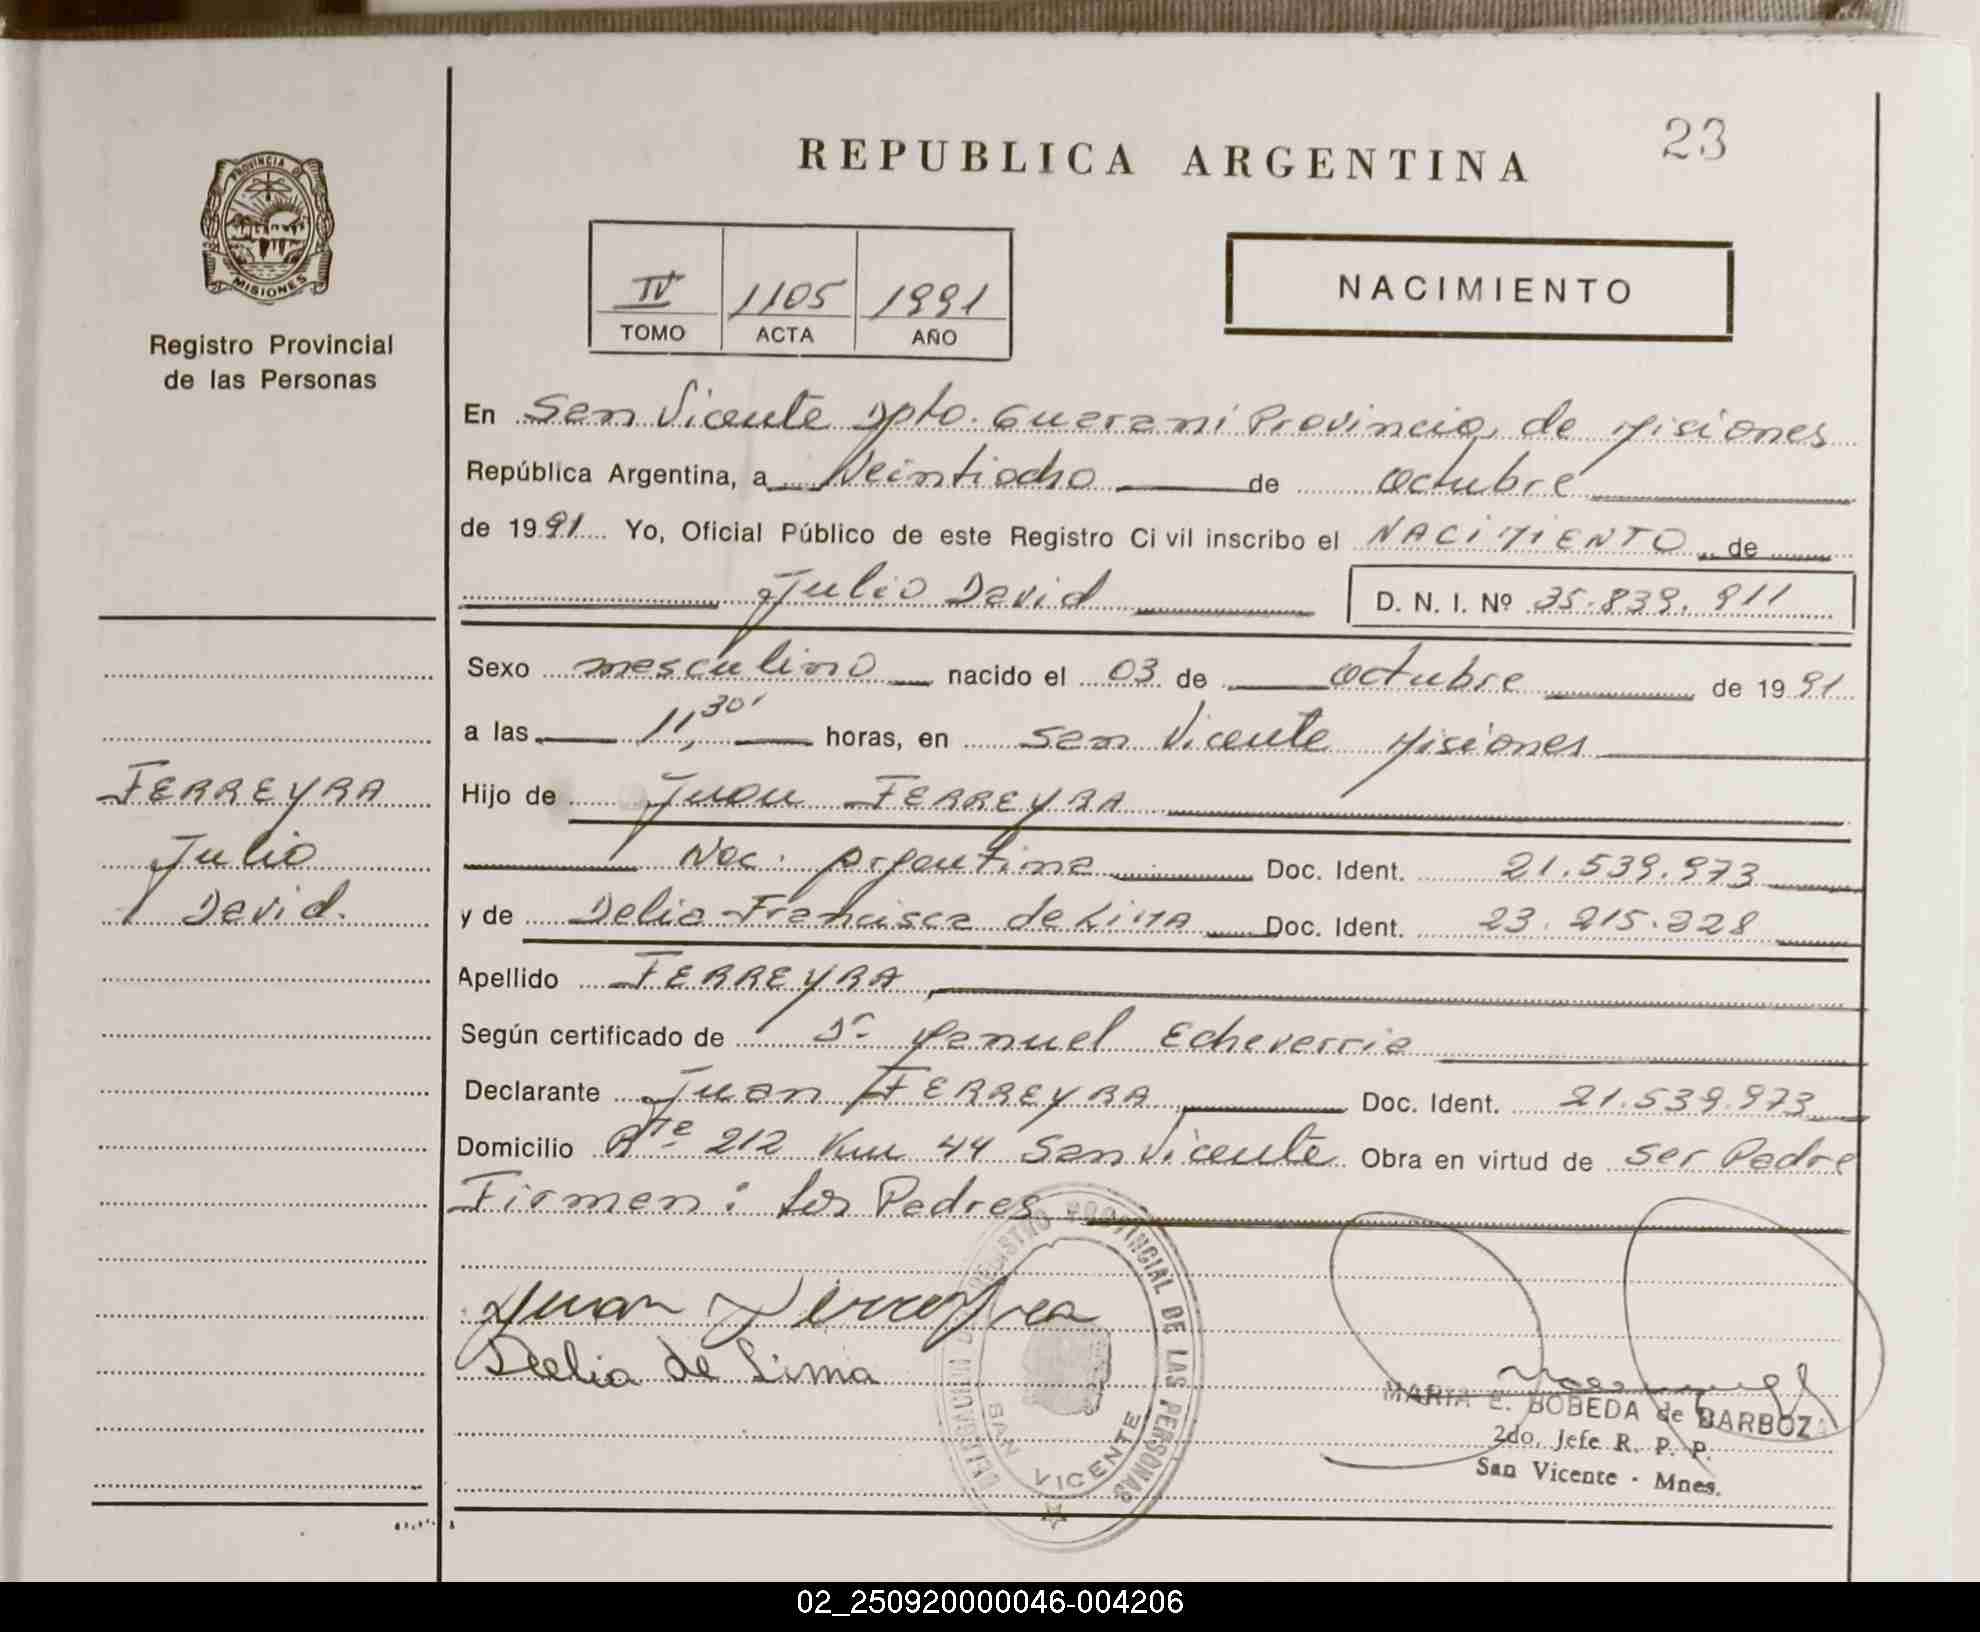 23
REPUBLICA ARGENTINA
PROVINCIA DE
MISIONES
Registro Provincial
de las Personas
IV 1105 1991
TOMO ACTA AÑO
NACIMIENTO
En San Vicente Dpto. Guaraní Provincia de Misiones
República Argentina, a Veintiocho de octubre
de 1991 Yo, Oficial Público de este Registro Civil inscribo el NACIMIENTO de
Julio David D. N. I. Nº 35.839.911
Sexo masculino nacido el 03 de octubre de 1991
a las 11,30' horas, en San Vicente Misiones
FERREYRA
Julio
David.
Hijo de Juan FERREYRA
Nac: argentina Doc. Ident. 21.539.973
y de Delia Francisca de LiMA Doc. Ident. 23.215.328
Apellido FERREYRA
Según certificado de Dr. Manuel Echeverria
Declarante Juan FERREYRA Doc. Ident. 21.539.973
Domicilio Rte 212 Km 44 San Vicente Obra en virtud de ser Padre
Firman: los Padres
Juan Ferreyra
Delia de Lima
REGISTRO PROVINCIAL DE LAS PERSONAS
DELEGACION
SAN VICENTE
MARIA E. BOBEDA de BARBOZA
2do. Jefe R. P. P.
San Vicente - Mnes.
02_250920000046-004206